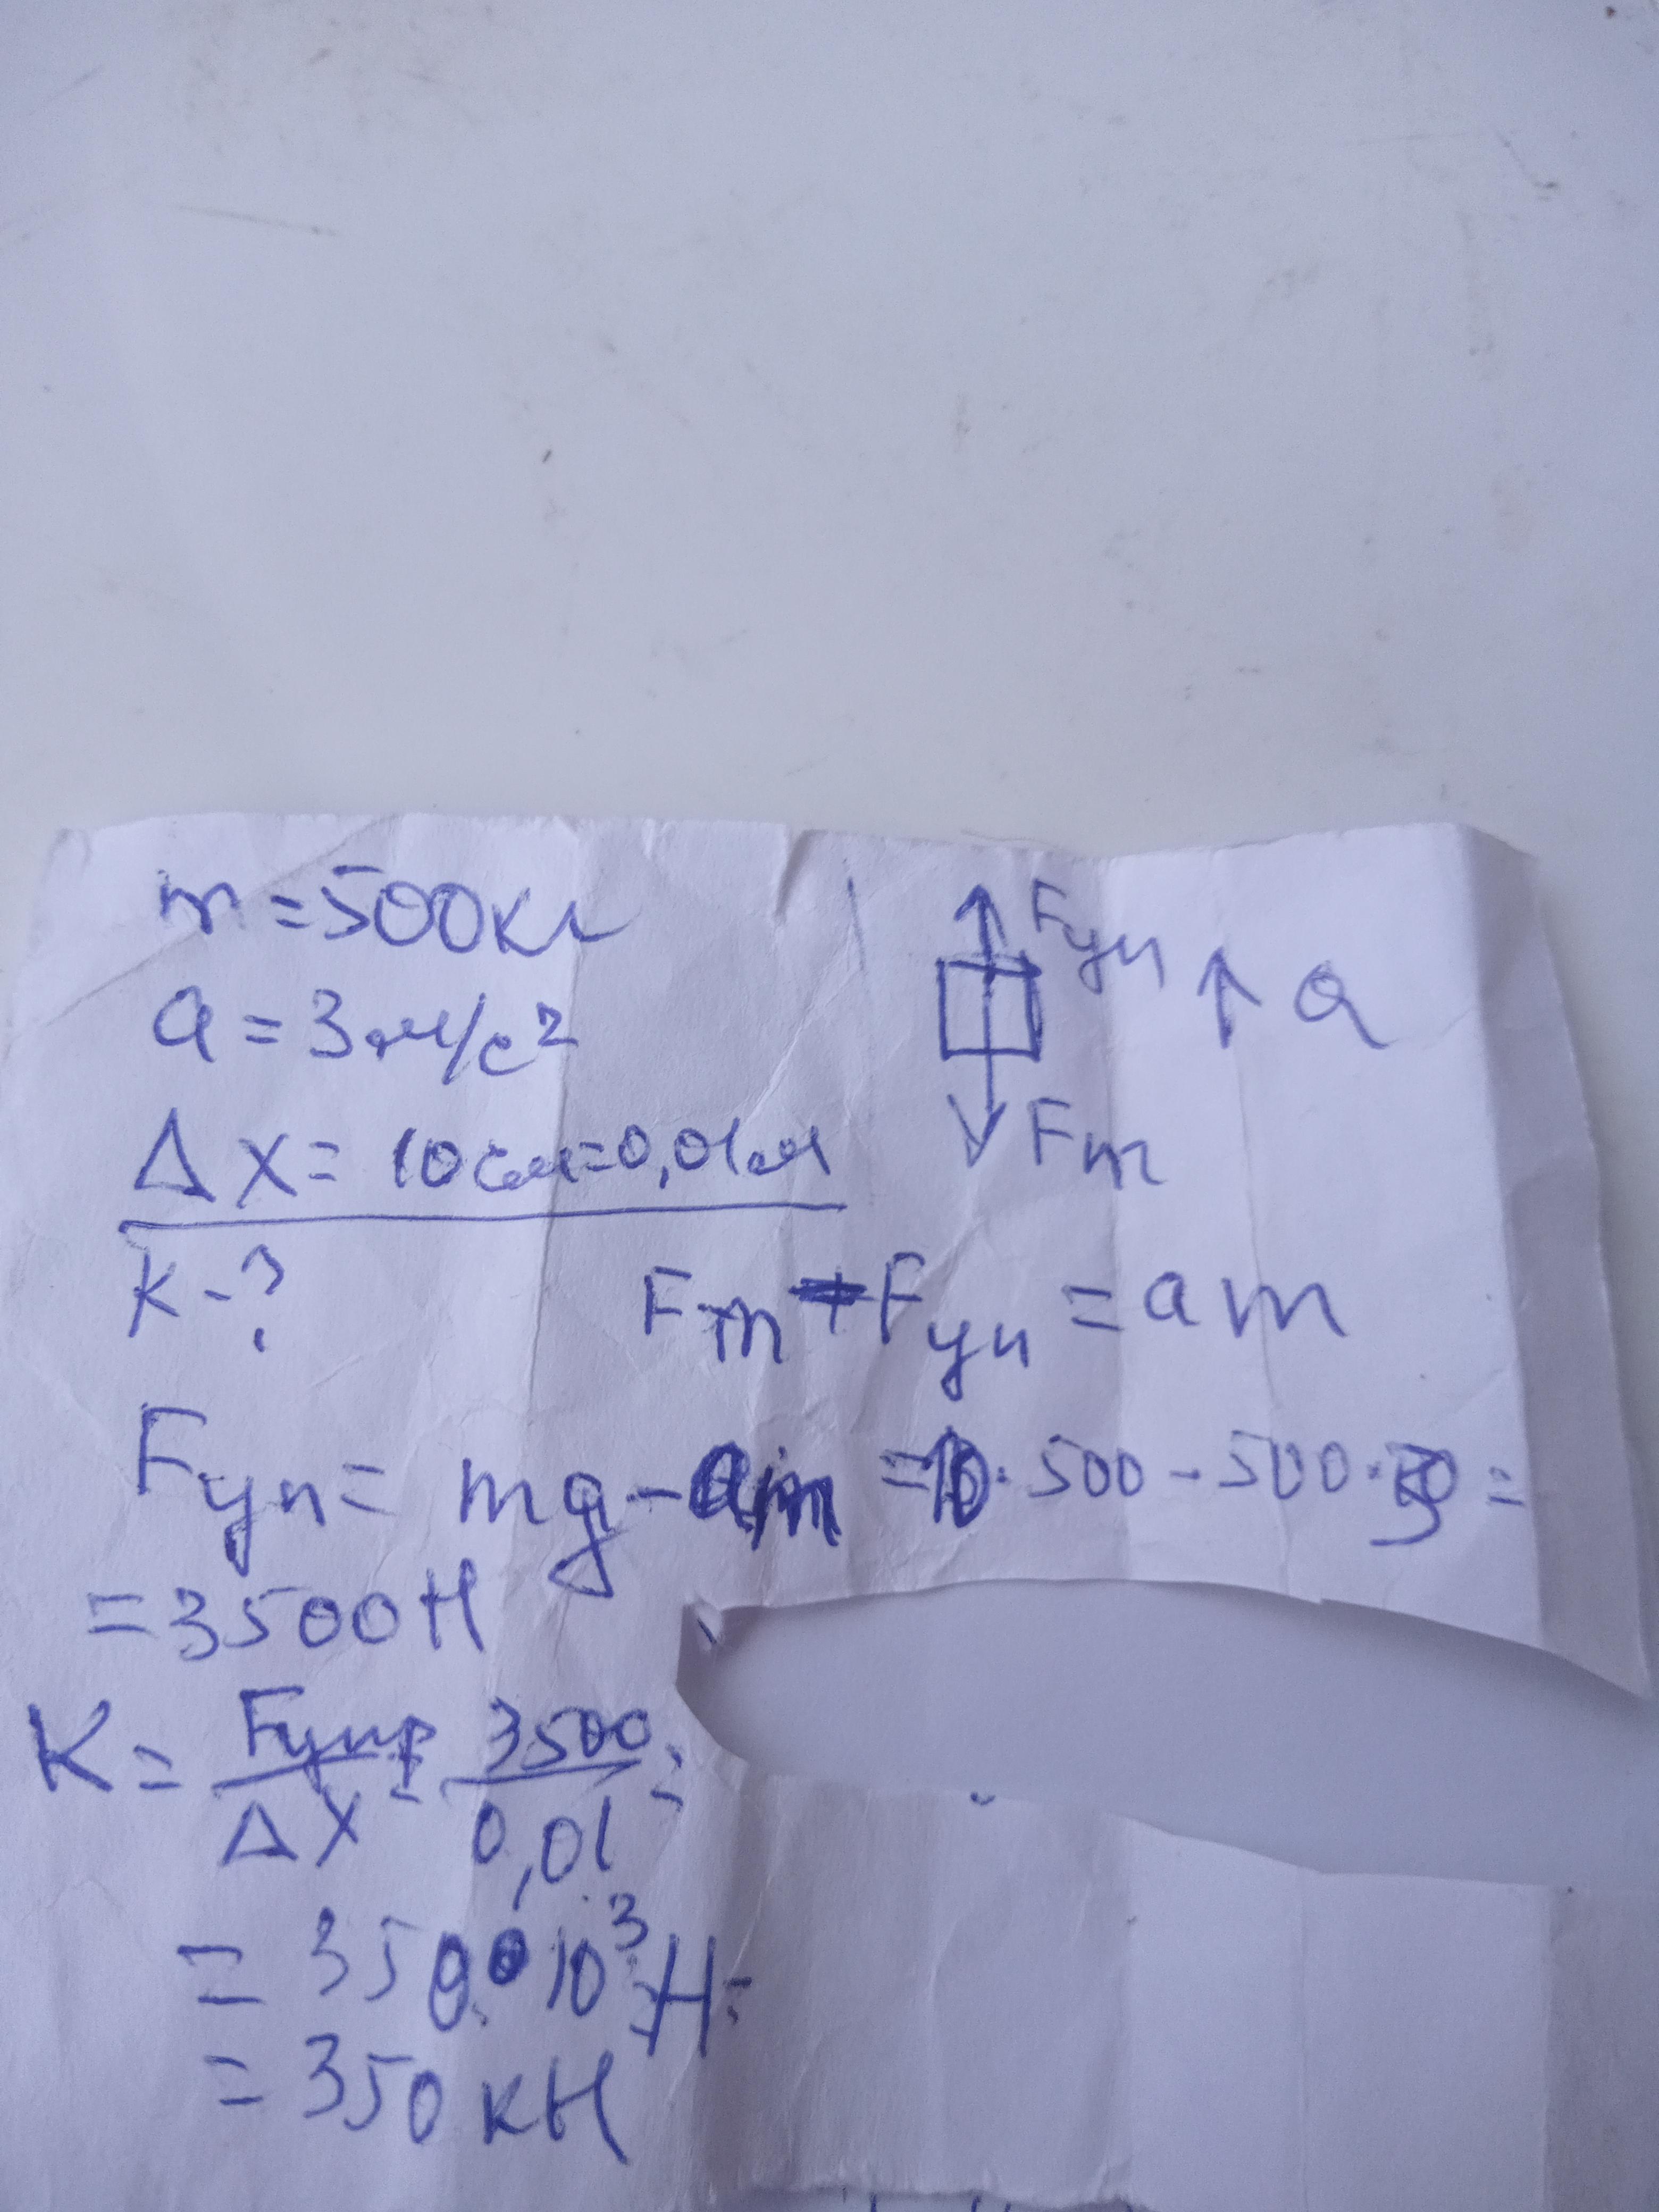 m = 500 кг
Fуп
a = 3 м/с²
a
Δx = 10 см = 0,01 м
Fт
K - ?
Fт - Fуп = am
Fуп = mg - am = 10 · 500 - 500 · 3 =
= 3500 Н
K = Fупр / Δx = 3500 / 0,01 =
= 350 · 10³ Н =
= 350 кН